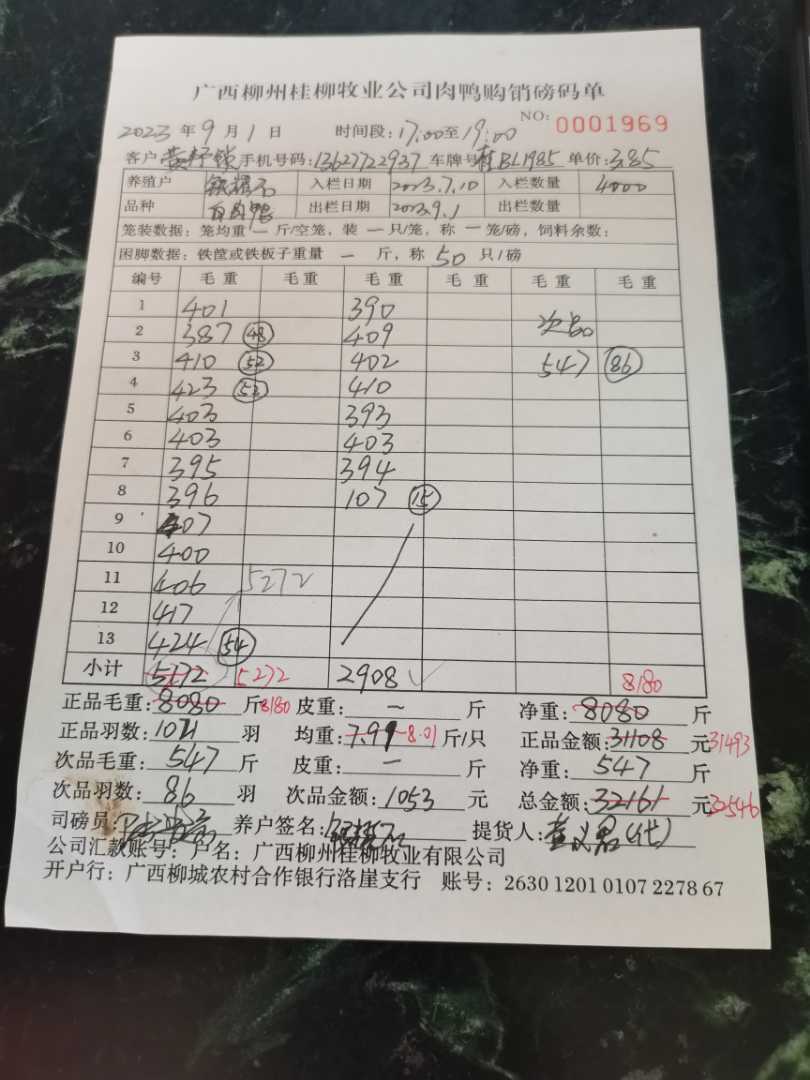 广西柳州桂柳牧业公司肉鸭购销磅码单
NO: 0001969
2023 年 9 月 1 日 时间段: 17:00 至 19:00
客户 手机号码: 13627722937 车牌号 桂BL1985 单价: 3.85
养殖户 入栏日期 2023.7.10 入栏数量 4000
品种 白肉鸭 出栏日期 2023.9.1 出栏数量
笼装数据: 笼均重 一 斤/空笼, 装 一 只/笼, 称 一 笼/磅, 饲料余数:
困脚数据: 铁筐或铁板子重量 一 斤, 称 50 只/磅
编号 毛重 毛重 毛重 毛重 毛重 毛重
1 401 390
2 387 48 409 次品
3 410 52 402 547 86
4 423 53 410
5 403 393
6 403 403
7 395 394
8 396 107 15
9 407
10 400
11 406 5272
12 417
13 424 54
小计 5272 2908 8180
正品毛重: 8080 斤 8180 皮重: 一 斤 净重: 8080 斤
正品羽数: 1021 羽 均重: 7.91 8.01 斤/只 正品金额: 31108 元 31493
次品毛重: 547 斤 皮重: 一 斤 净重: 547 斤
次品羽数: 86 羽 次品金额: 1053 元 总金额: 32161 元 32546
司磅员: 养户签名: 提货人: 黄义君(代)
公司汇款账号: 户名: 广西柳州桂柳牧业有限公司
开户行: 广西柳城农村合作银行洛崖支行 账号: 2630 1201 0107 2278 67